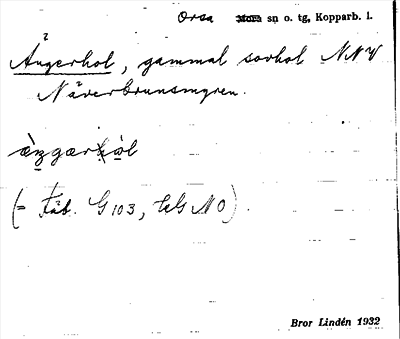 Orsa Mora sn o. tg, Kopparb. l.
Ångerhol, gammal sovhol NNV
Näverbrunsmyren.
(= fäb. G 103, NO).
Bror Lindén 1932